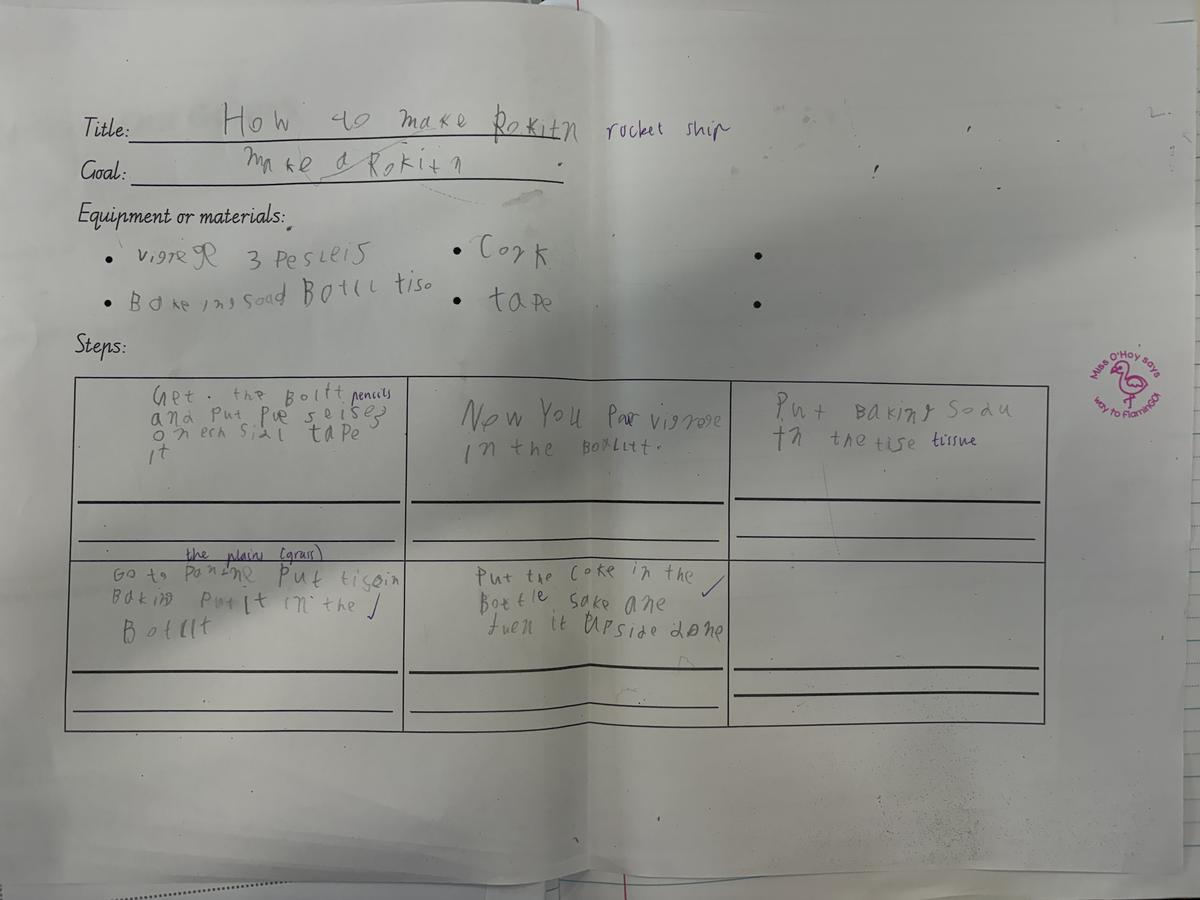 Title: How to make Rokitn rocket ship
Goal: make a Rokitn
Equipment or materials:
• vigre 3 pesleis • Cork •
• Bakeingsoad Botll tiso • tape •
Steps:
Get . the Boltt pencils
and put pe seises
on ech sidl tape
it
Now You Par vigrore
in the
Put Baking Sodu
in the tise tissue
the plains (grass)
Go to Pan-ne Put tisoin
Baking Put it in the
Botllt
Put the Coke in the
Bottle sake ane
tuen it Upside done
Miss O'Hoy says
way to FlaminGO!
2.